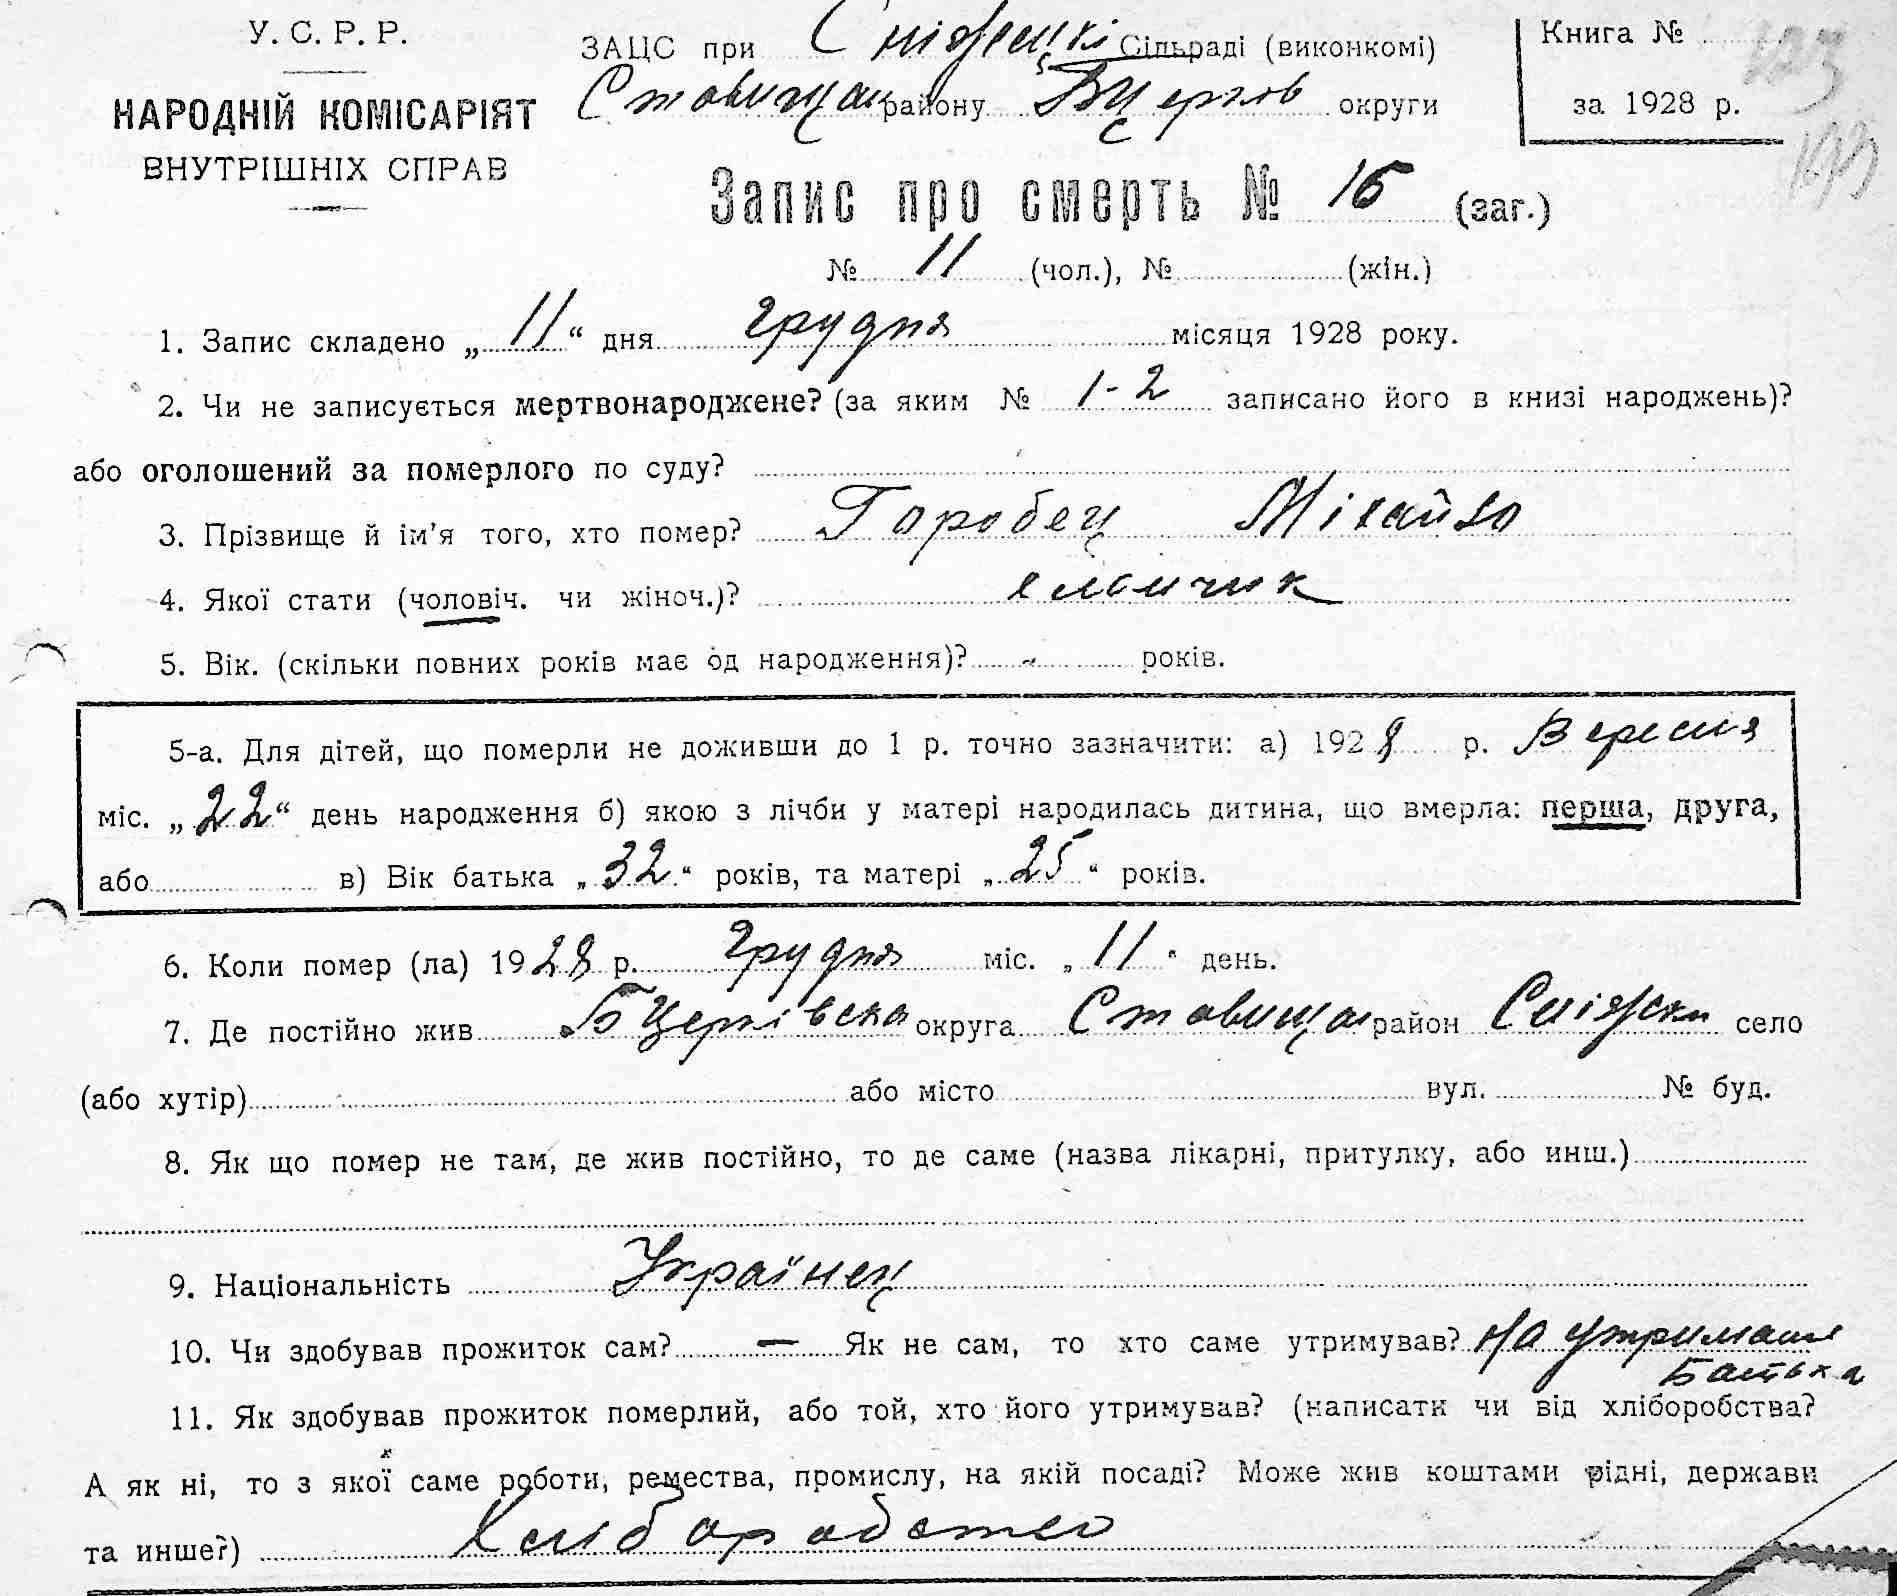 У. С. Р. Р.
НАРОДНІЙ КОМІСАРІЯТ
ВНУТРІШНІХ СПРАВ
ЗАЦС при Сніжецкі Сільраді (виконкомі)
Ставищан району БЦерків округи
Книга №
за 1928 р.
Запис про смерть № 15 (заг.)
№ 11 (чол.), № (жін.)
1. Запис складено „ 11 “ дня грудня місяця 1928 року.
2. Чи не записується мертвонароджене? (за яким № 1-2 записано його в книзі народжень)?
або оголошений за померлого по суду?
3. Прізвище й ім’я того, хто помер? Горобец Міхайло
4. Якої стати (чоловіч. чи жіноч.)? хлопчик
5. Вік. (скільки повних років має од народження)? - років.
5-а. Для дітей, що померли не доживши до 1 р. точно зазначити: а) 1928 р. Вересня
міс. „ 22 “ день народження б) якою з лічби у матері народилась дитина, що вмерла: перша, друга,
або в) Вік батька „ 32 “ років, та матері „ 25 “ років.
6. Коли помер (ла) 1928 р. грудня міс. „ 11 “ день.
7. Де постійно жив БЦерківська округа Ставища район Сніжки село
(або хутір) або місто вул. № буд.
8. Як що помер не там, де жив постійно, то де саме (назва лікарні, притулку, або инш.)
9. Національність Українец
10. Чи здобував прожиток сам? — Як не сам, то хто саме утримував? На утриманні
Батька
11. Як здобував прожиток померлий, або той, хто його утримував? (написати чи від хліборобства?
А як ні, то з якої саме роботи, ремества, промислу, на якій посаді? Може жив коштами рідні, держави
та инше?) Хліборобство